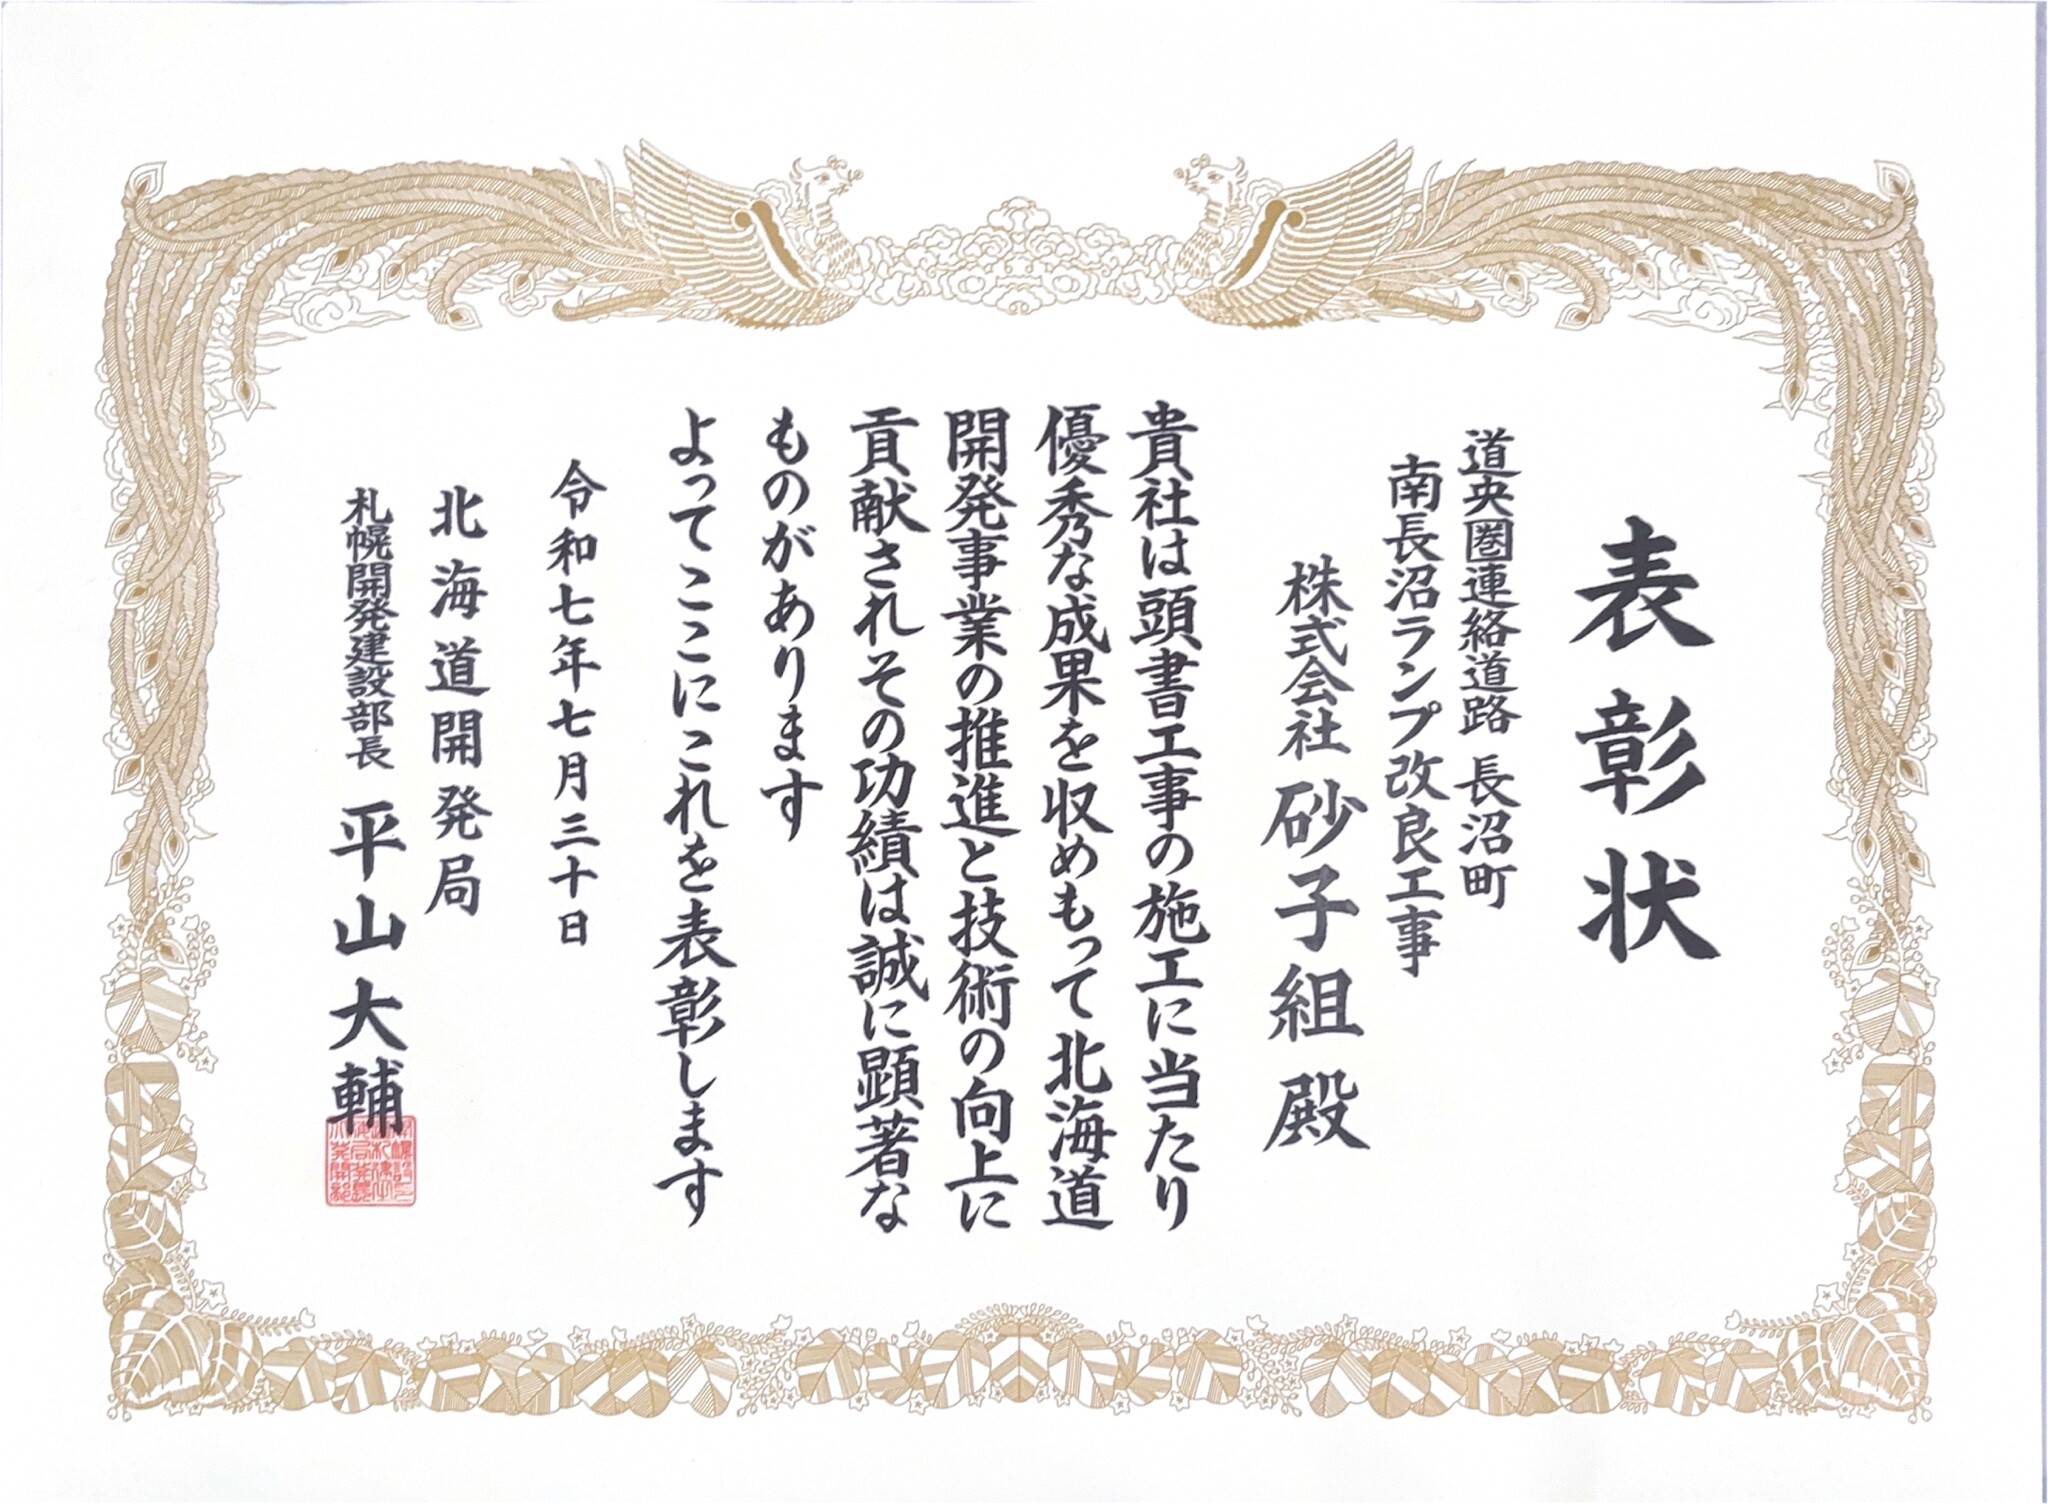 表彰状
道央圏連絡道路 長沼町
南長沼ランプ改良工事
株式会社 砂子組 殿
貴社は頭書工事の施工に当たり
優秀な成果を収めもって北海道
開発事業の推進と技術の向上に
貢献されその功績は誠に顕著な
ものがあります
よってここにこれを表彰します
令和七年七月三十日
北海道開発局
札幌開発建設部長 平山大輔